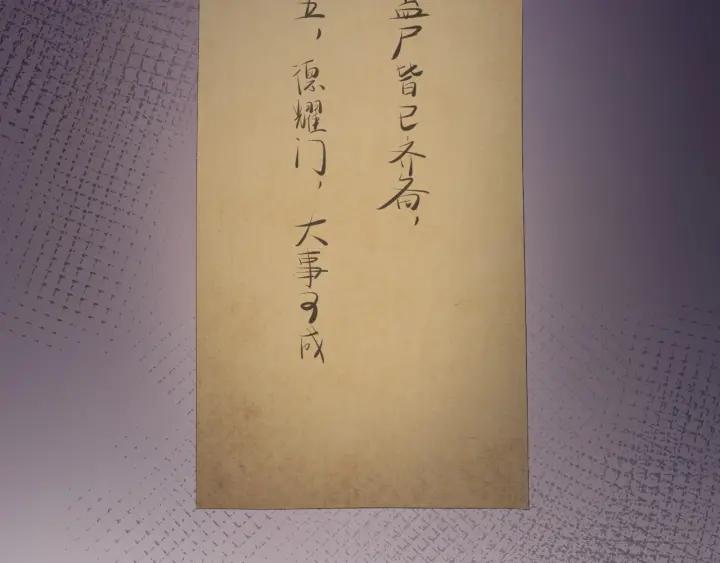 蛊尸皆已齐备，
五，德耀门，大事可成